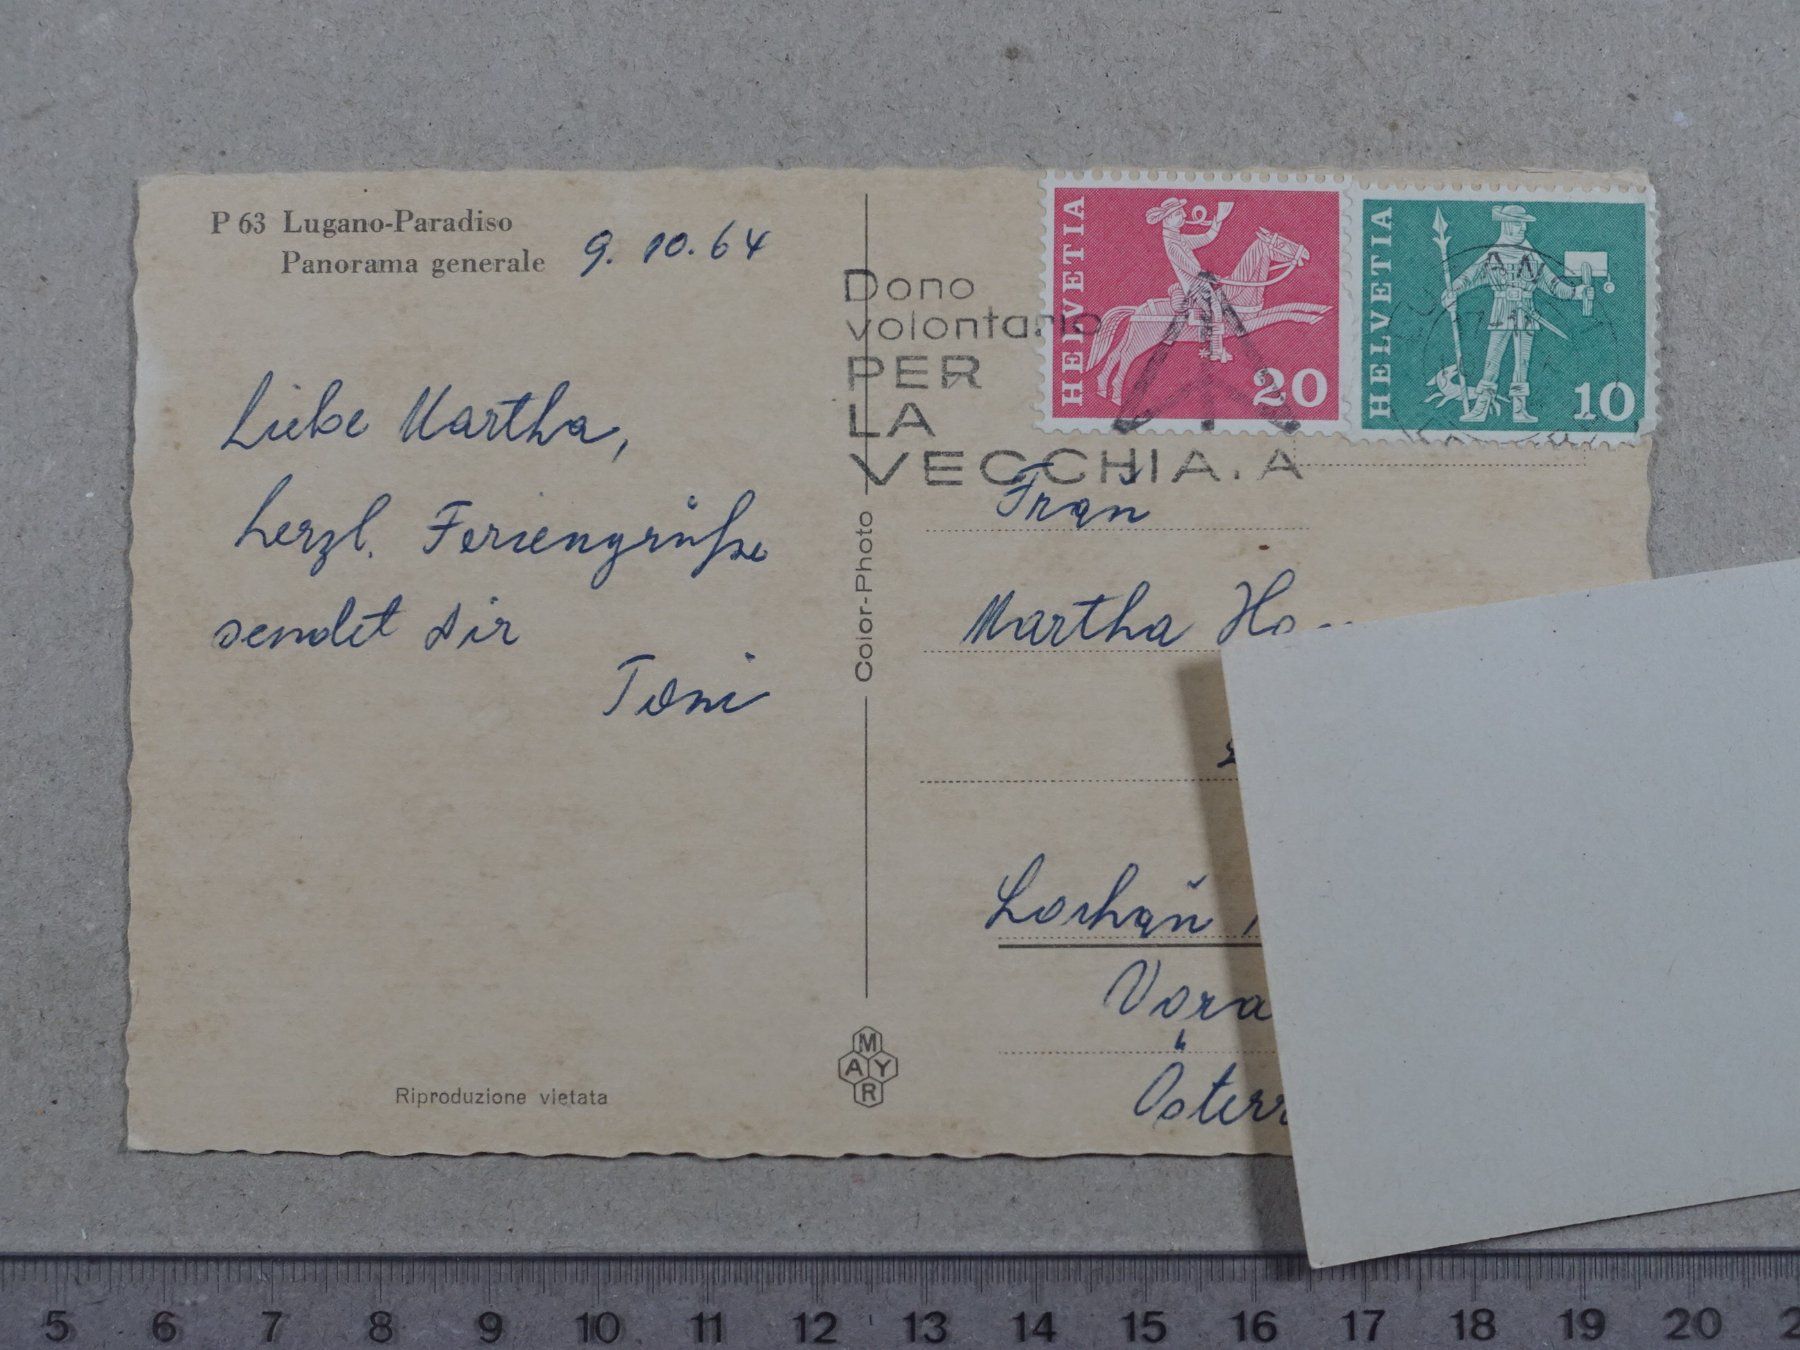 P 63 Lugano-Paradiso
Panorama generale
9. 10. 64
Liebe Martha,
herzl. Feriengrüße
sendet dir
Toni
Riproduzione vietata
Color-Photo
MAYR
Dono
volontario
PER
LA
VECCHIA. A
HELVETIA
20
HELVETIA
10
Frau
Martha
Lochau
Vora
Österr
5 6 7 8 9 10 11 12 13 14 15 16 17 18 19 20 2